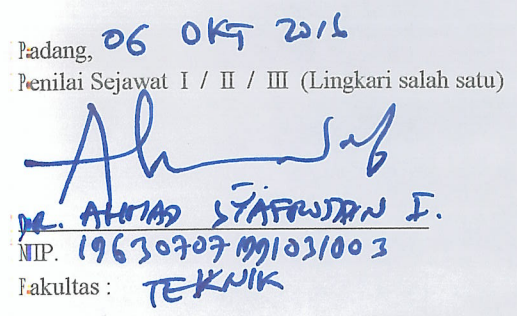 Padang, 06 OKT 2016
Penilai Sejawat I / II / III (Lingkari salah satu)
DR. AHMAD SYAFRUDDIN I.
NIP. 19630707 199103 1 003
Fakultas : TEKNIK